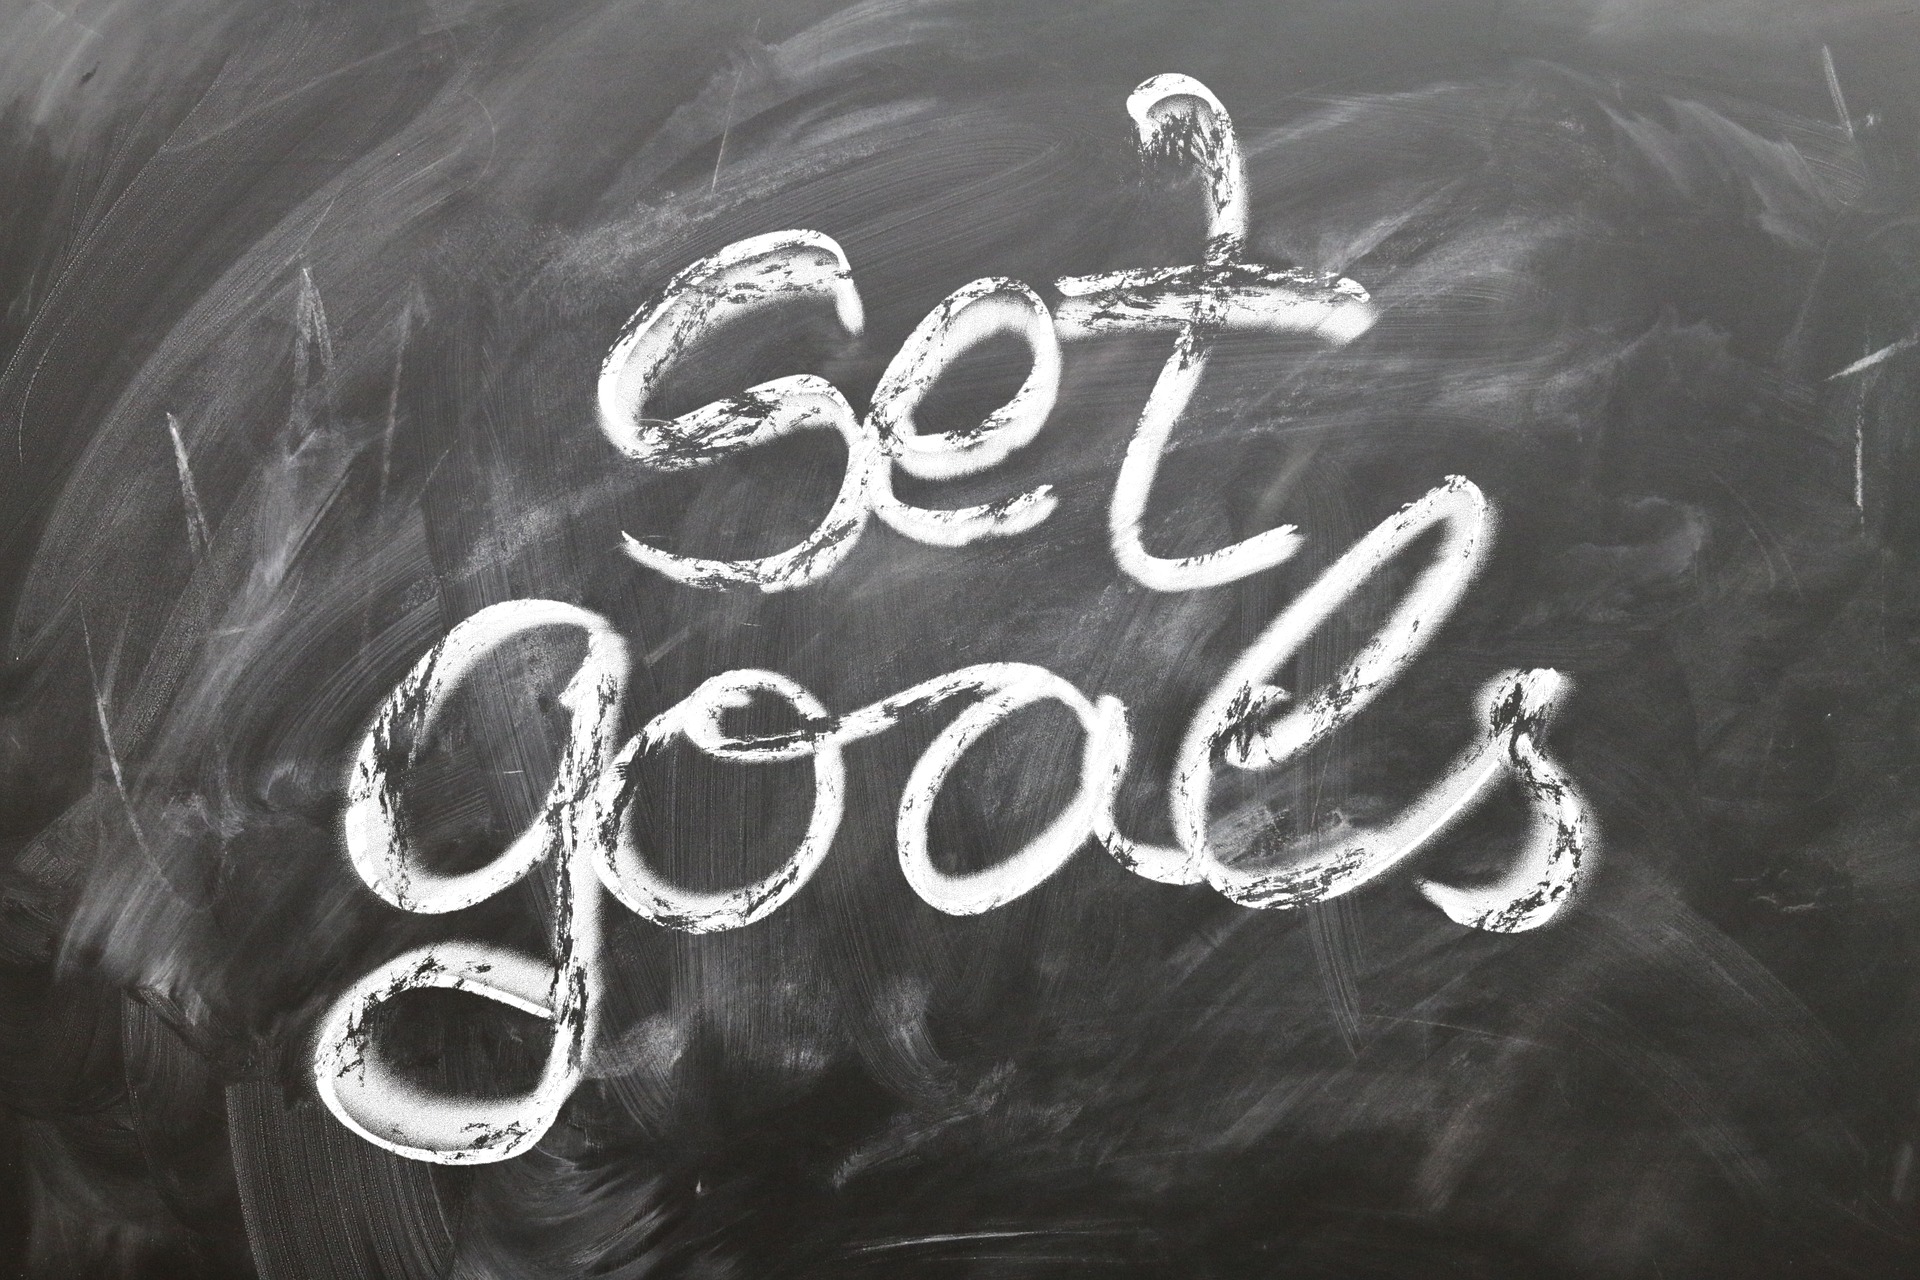 set
goals